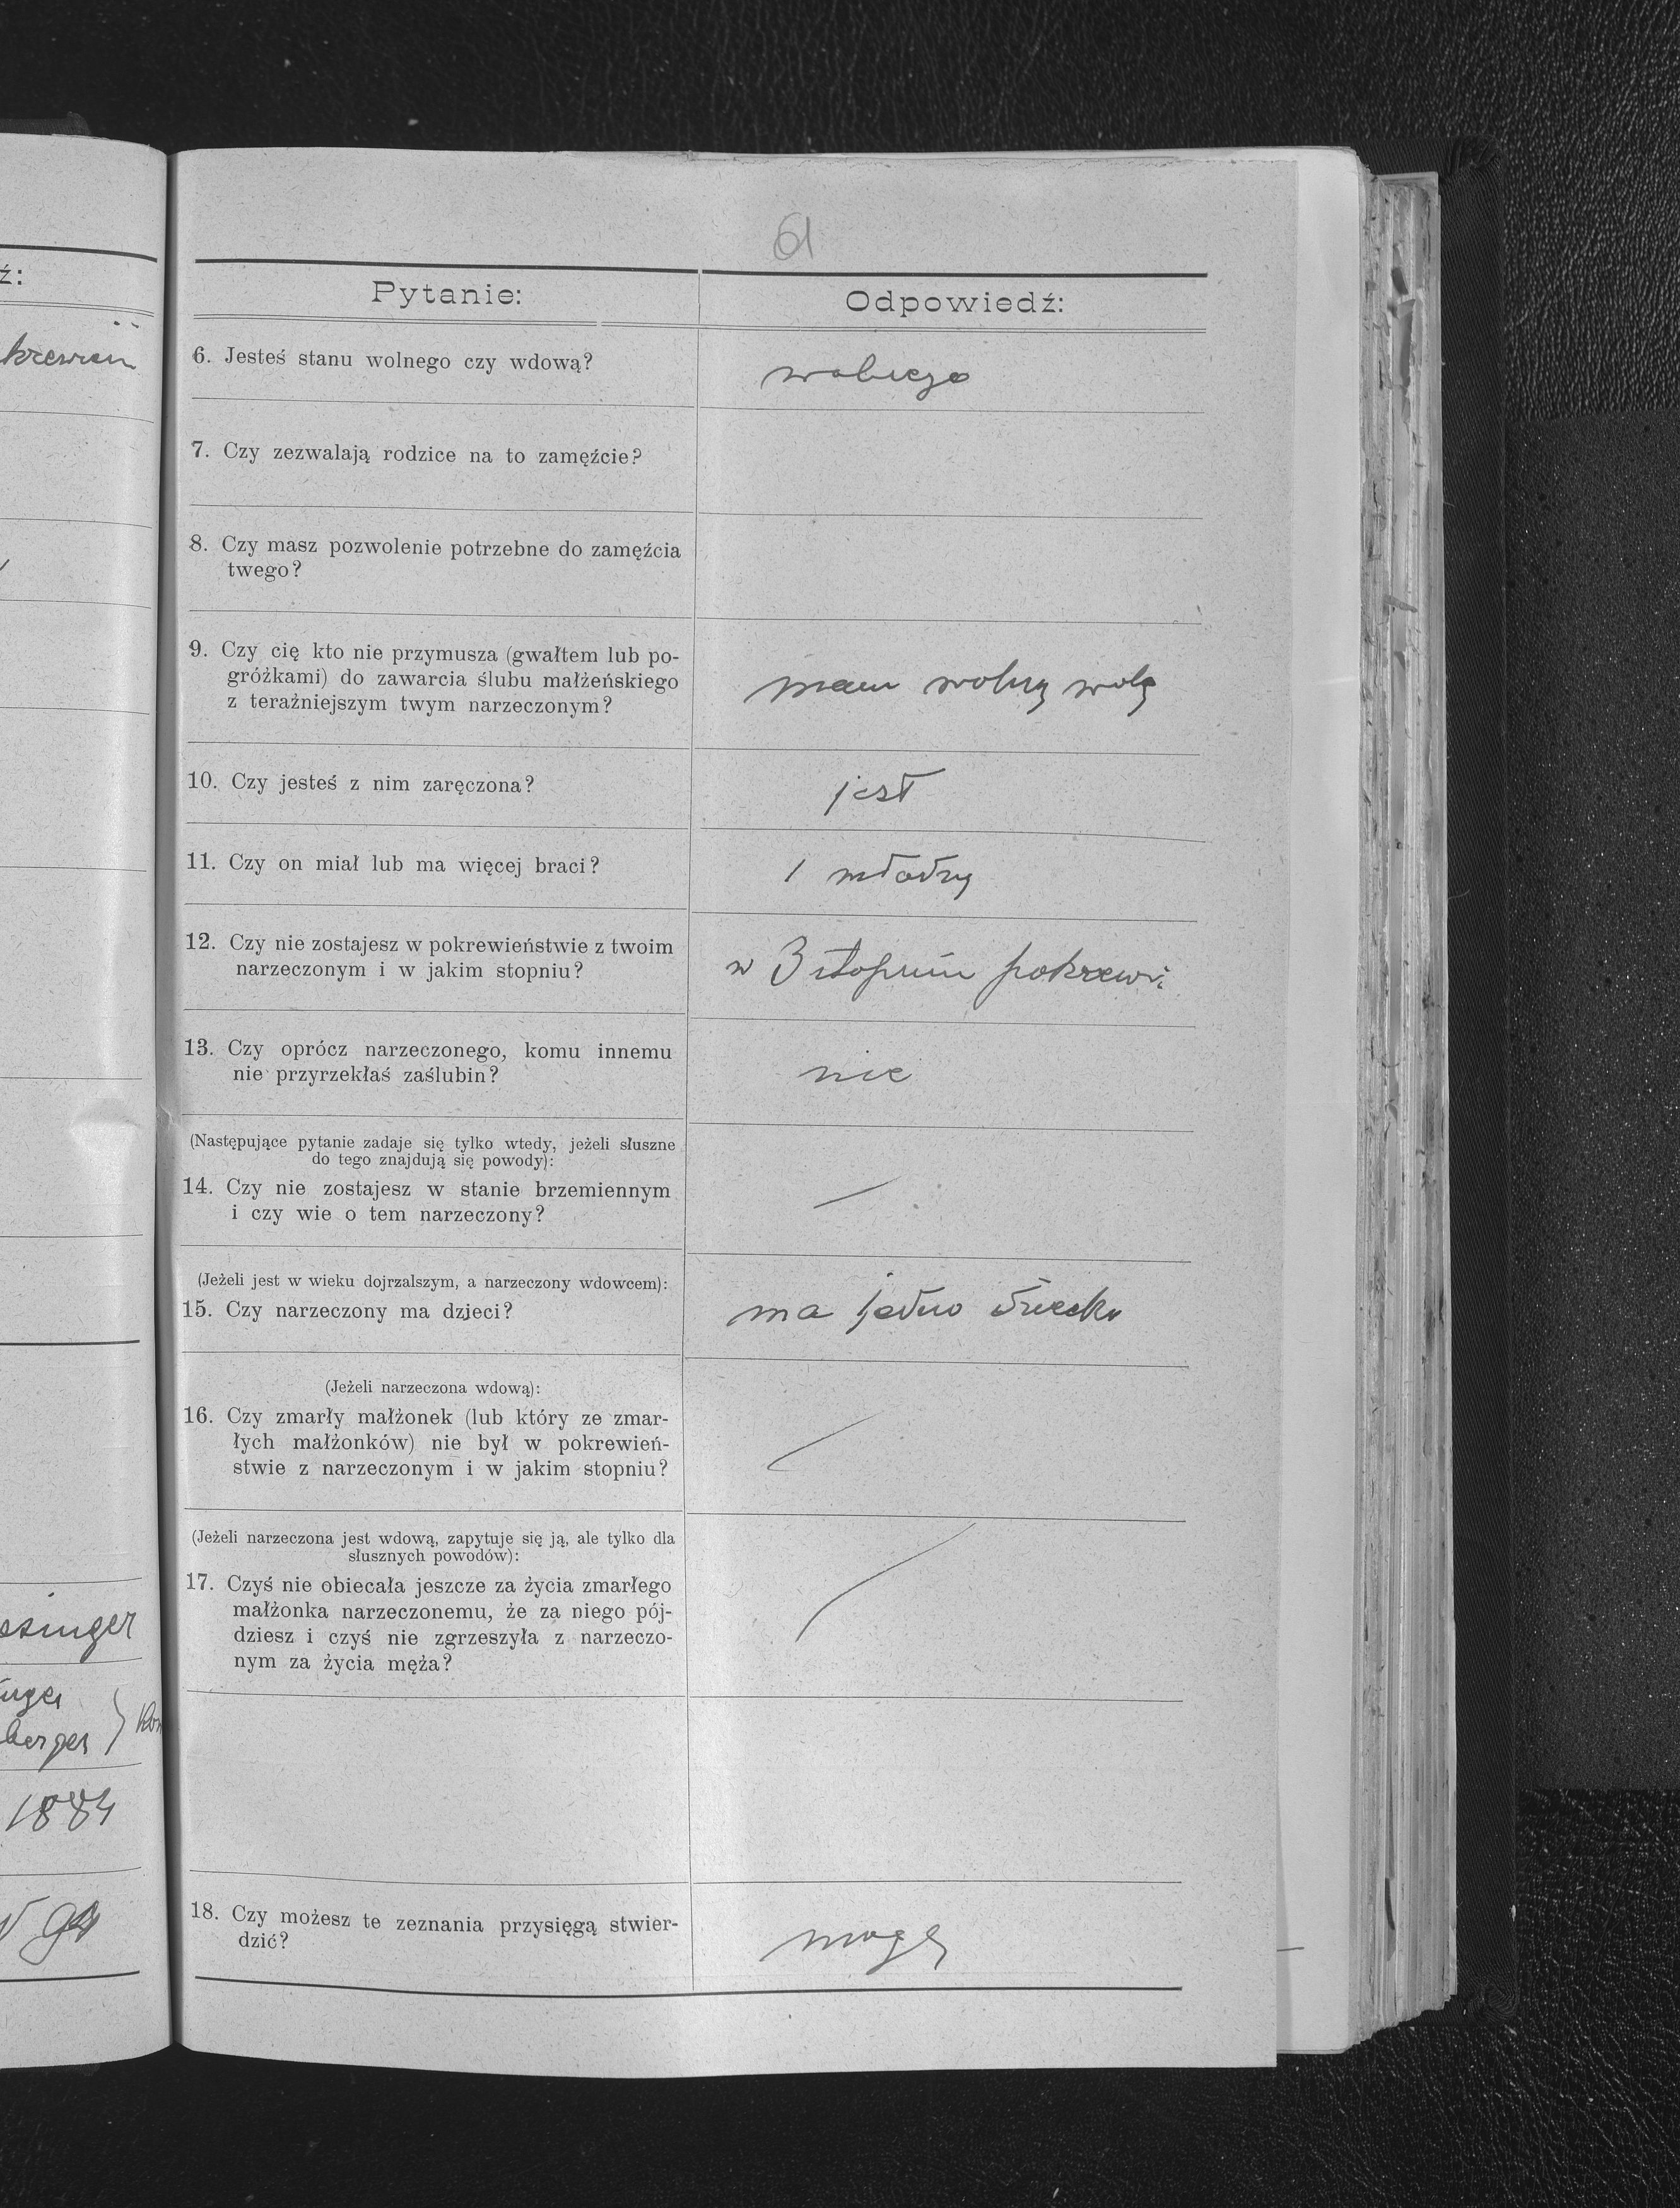 ź:
krewień
esinger
berger
1884
61
Pytanie:
Odpowiedź:
6. Jesteś stanu wolnego czy wdową?
wolnego
7. Czy zezwalają rodzice na to zamęźcie?
8. Czy masz pozwolenie potrzebne do zamęźcia
twego?
9. Czy cię kto nie przymusza (gwałtem lub po-
gróżkami) do zawarcia ślubu małżeńskiego
z teraźniejszym twym narzeczonym?
mam wolną wolę
10. Czy jesteś z nim zaręczona?
jest
11. Czy on miał lub ma więcej braci?
1 młodzy
12. Czy nie zostajesz w pokrewieństwie z twoim
narzeczonym i w jakim stopniu?
w 3 stopniu pokrewi
13. Czy oprócz narzeczonego, komu innemu
nie przyrzekłaś zaślubin?
nie
(Następujące pytanie zadaje się tylko wtedy, jeżeli słuszne
do tego znajdują się powody):
14. Czy nie zostajesz w stanie brzemiennym
i czy wie o tem narzeczony?
(Jeżeli jest w wieku dojrzalszym, a narzeczony wdowcem):
15. Czy narzeczony ma dzieci?
ma jedno dziecko
(Jeżeli narzeczona wdową):
16. Czy zmarły małżonek (lub który ze zmar-
łych małżonków) nie był w pokrewień-
stwie z narzeczonym i w jakim stopniu?
(Jeżeli narzeczona jest wdową, zapytuje się ją, ale tylko dla
słusznych powodów):
17. Czyś nie obiecała jeszcze za życia zmarłego
małżonka narzeczonemu, że za niego pój-
dziesz i czyś nie zgrzeszyła z narzeczo-
nym za życia męża?
18. Czy możesz te zeznania przysięgą stwier-
dzić?
mogę